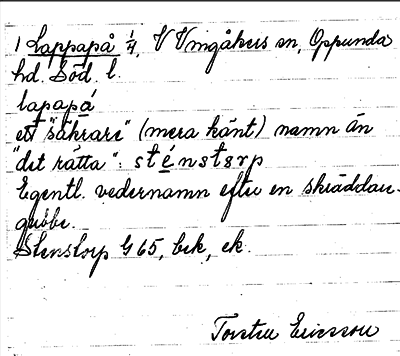 1 Lappapå 1/4, V Vingåkers sn, Oppunda
hd. Söd. l.
lapapá
ett "säkrare" (mera känt) namn än
"det rätta": sténstorp
Egentl. vedernamn efter en skräddar-
gubbe.
Stenstorp G 65, bek, ek.
Torsten Ericsson